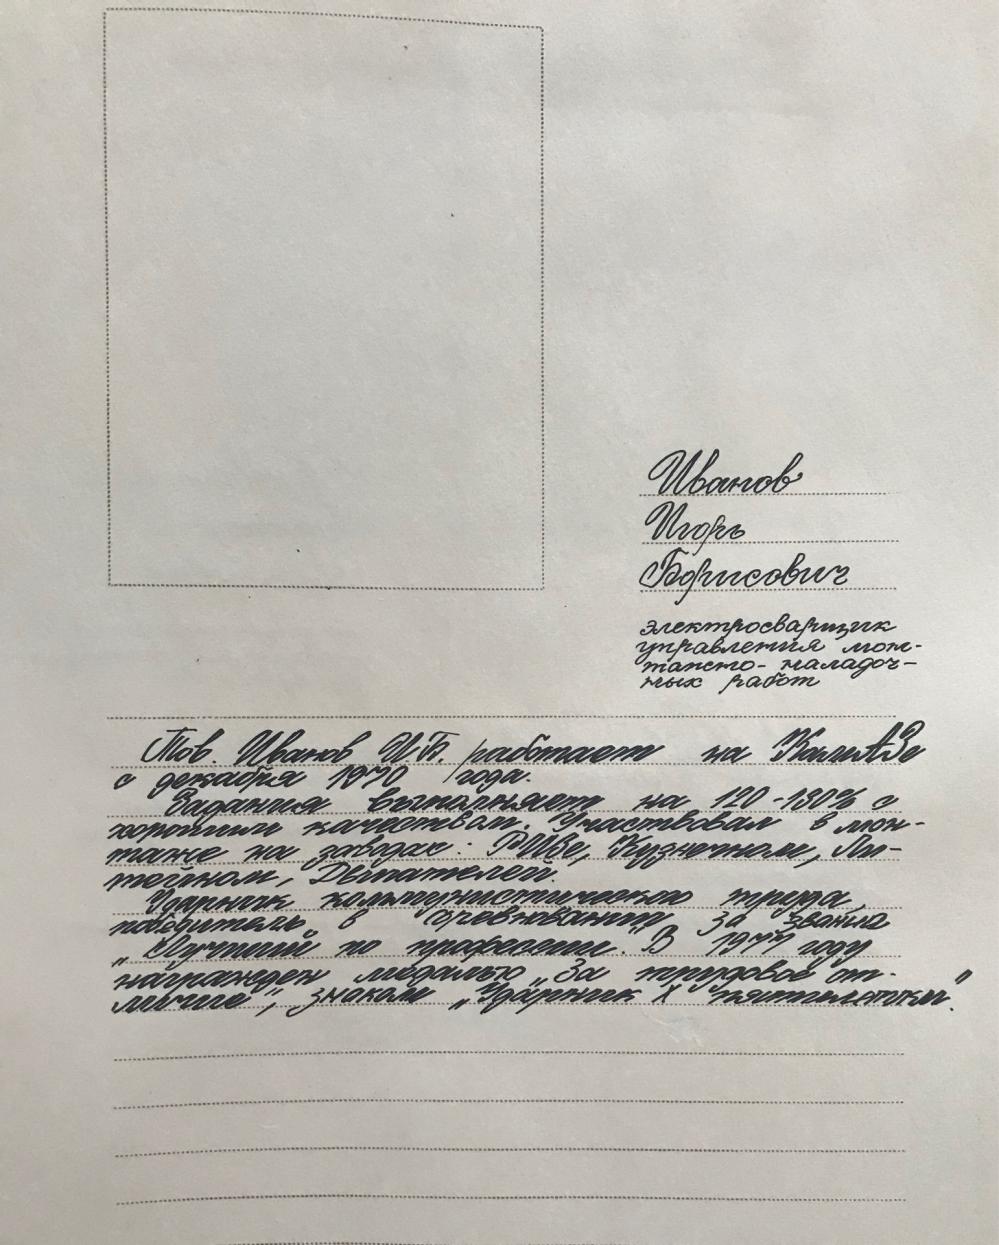 Иванов
Игорь
Борисович
электросварщик
управления мон-
тажно-наладоч-
ных работ
Тов. Иванов И.Б. работает на КамАЗе
с декабря 1970 года.
Задания выполняет на 120-130% с
хорошим качеством. Участвовал в мон-
таже на заводах: РИЗе, Кузнечном, Ли-
тейном, Двигателей.
Ударник коммунистического труда,
победитель в соревновании за звание
„Лучший по профессии." В 1977 году
награжден медалью „За трудовое от-
личие", знаком „Ударник X пятилетки".